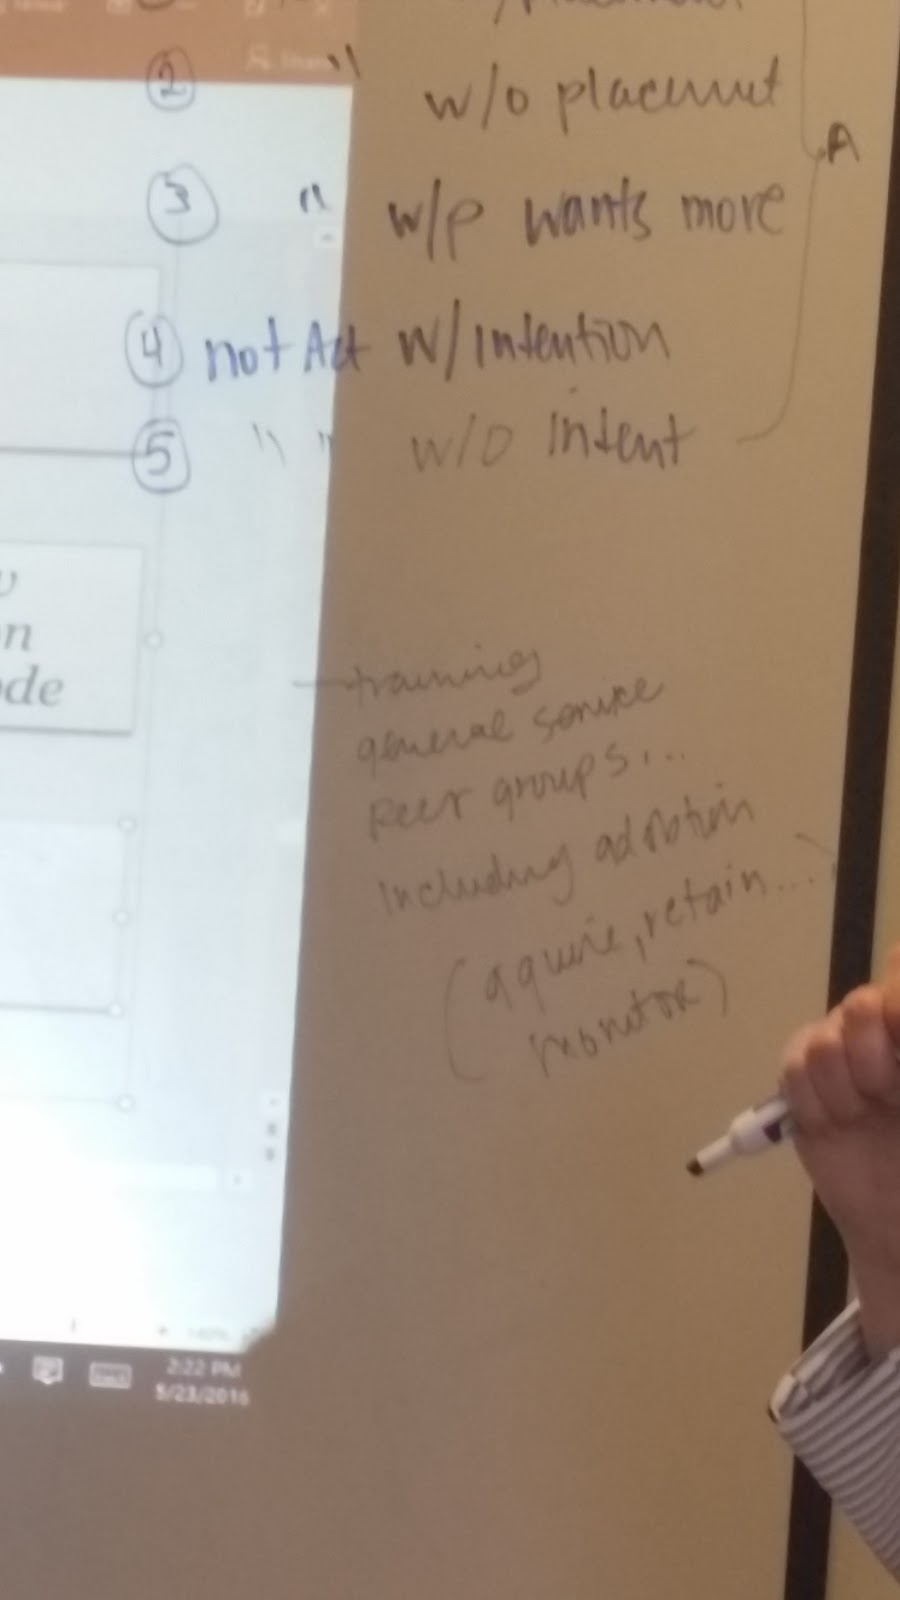 ② " w/o placemnt
③ " w/p wants more
④ not Act w/ intention
⑤ " " w/o intent
A
— training
general service
peer groups...
including adoption
(aquire, retain...)
monitor)
on
ode
2:22 PM
5/23/2016